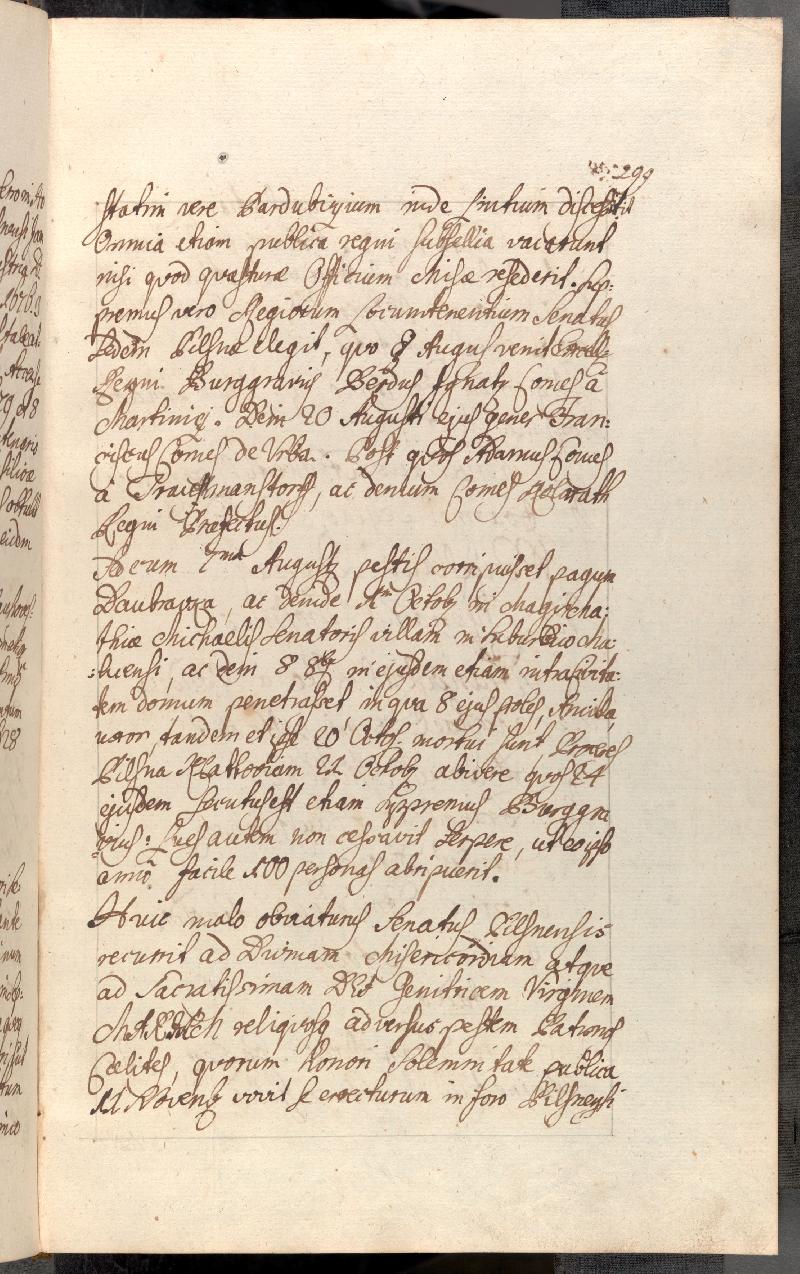 299
statim vere Pardubizium inde Brutium discessit
Omnia etiam publica regni subsellia vacarunt
nisi quod quæsturæ Officium Misæ resederit. Su-
premus vero Regiorum Locumtenentium Senatus
Sedem Pilsnæ elegit, quo 8 Augus venit
Regni Burggravius Ignatz Comes à
Martiniz. Dein 20 Augusti ejus gener Fran:
ciscus Comes de Vrba. Post quos Adamus Comes
à Trautmanstorff, ac demum Comes
Regni Præfectus.
Ac cum 7ma Augusti pestis corripuisset pagum
Daubrawa, ac deinde Octob in
Michaelis Senatoris villam in suburbio Ma:
:licensi, ac dein 8 8br in ejusdem etiam intra civita:
tem domum penetrasset in qua 8 ejus proles, Ancilla,
uxor, tandem et ipse 20 Octob. mortui sunt Proceres
Pilsna Klattoviam 22 Octob abivere quos 24
ejusdem secutus est etiam Suppremus Burggra
:vius: Lues autem non cessavit serpere, ut eo ipso
anno facile 100 personas abripuerit.
Huic malo obviaturus Senatus Pilsnensis
recurrit ad Divinam Misericordiam atque
ad Sacratissimam DEI Genitricem Virginem
MARIAM reliquosq adversus pestem Patronos
Cælites, quorum honori Solemnitate publica
11 Novemb vovit se erecturum in foro Pilsnensi